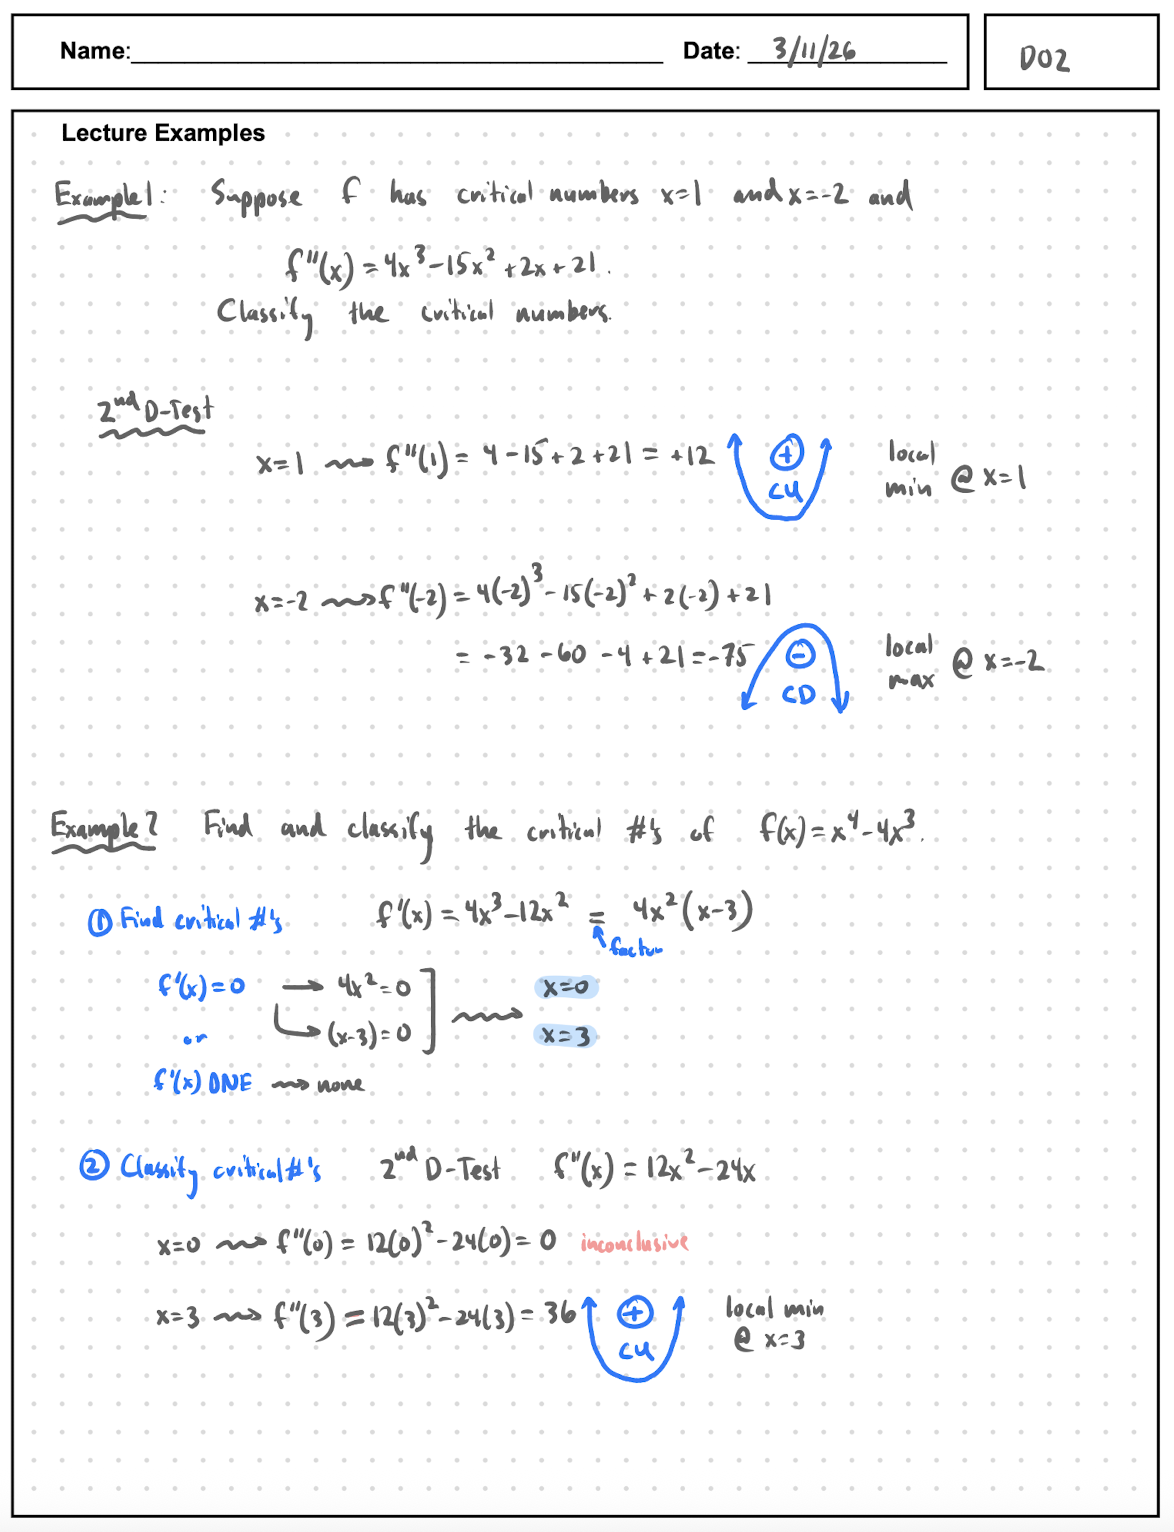 Name: Date: 3/11/26 D02
Lecture Examples
Example 1: Suppose f has critical numbers x=1 and x=-2 and
f''(x) = 4x³-15x²+2x+21.
Classify the critical numbers.
2nd D-Test
x=1 ⟿ f''(1) = 4-15+2+21 = +12 + CU local min @ x=1
x=-2 ⟿ f''(-2) = 4(-2)³-15(-2)²+2(-2)+21
= -32-60-4+21=-75 - CD local max @ x=-2
Example 2 Find and classify the critical #'s of f(x)=x⁴-4x³.
① Find critical #'s f'(x) = 4x³-12x² = 4x²(x-3)
factor
f'(x)=0 → 4x²=0 x=0
or → (x-3)=0 ⟿ x=3
f'(x) DNE ⟿ none
② Classify critical #'s 2nd D-Test f''(x) = 12x²-24x
x=0 ⟿ f''(0) = 12(0)²-24(0)= 0 inconclusive
x=3 ⟿ f''(3) = 12(3)²-24(3) = 36 + CU local min
@ x=3